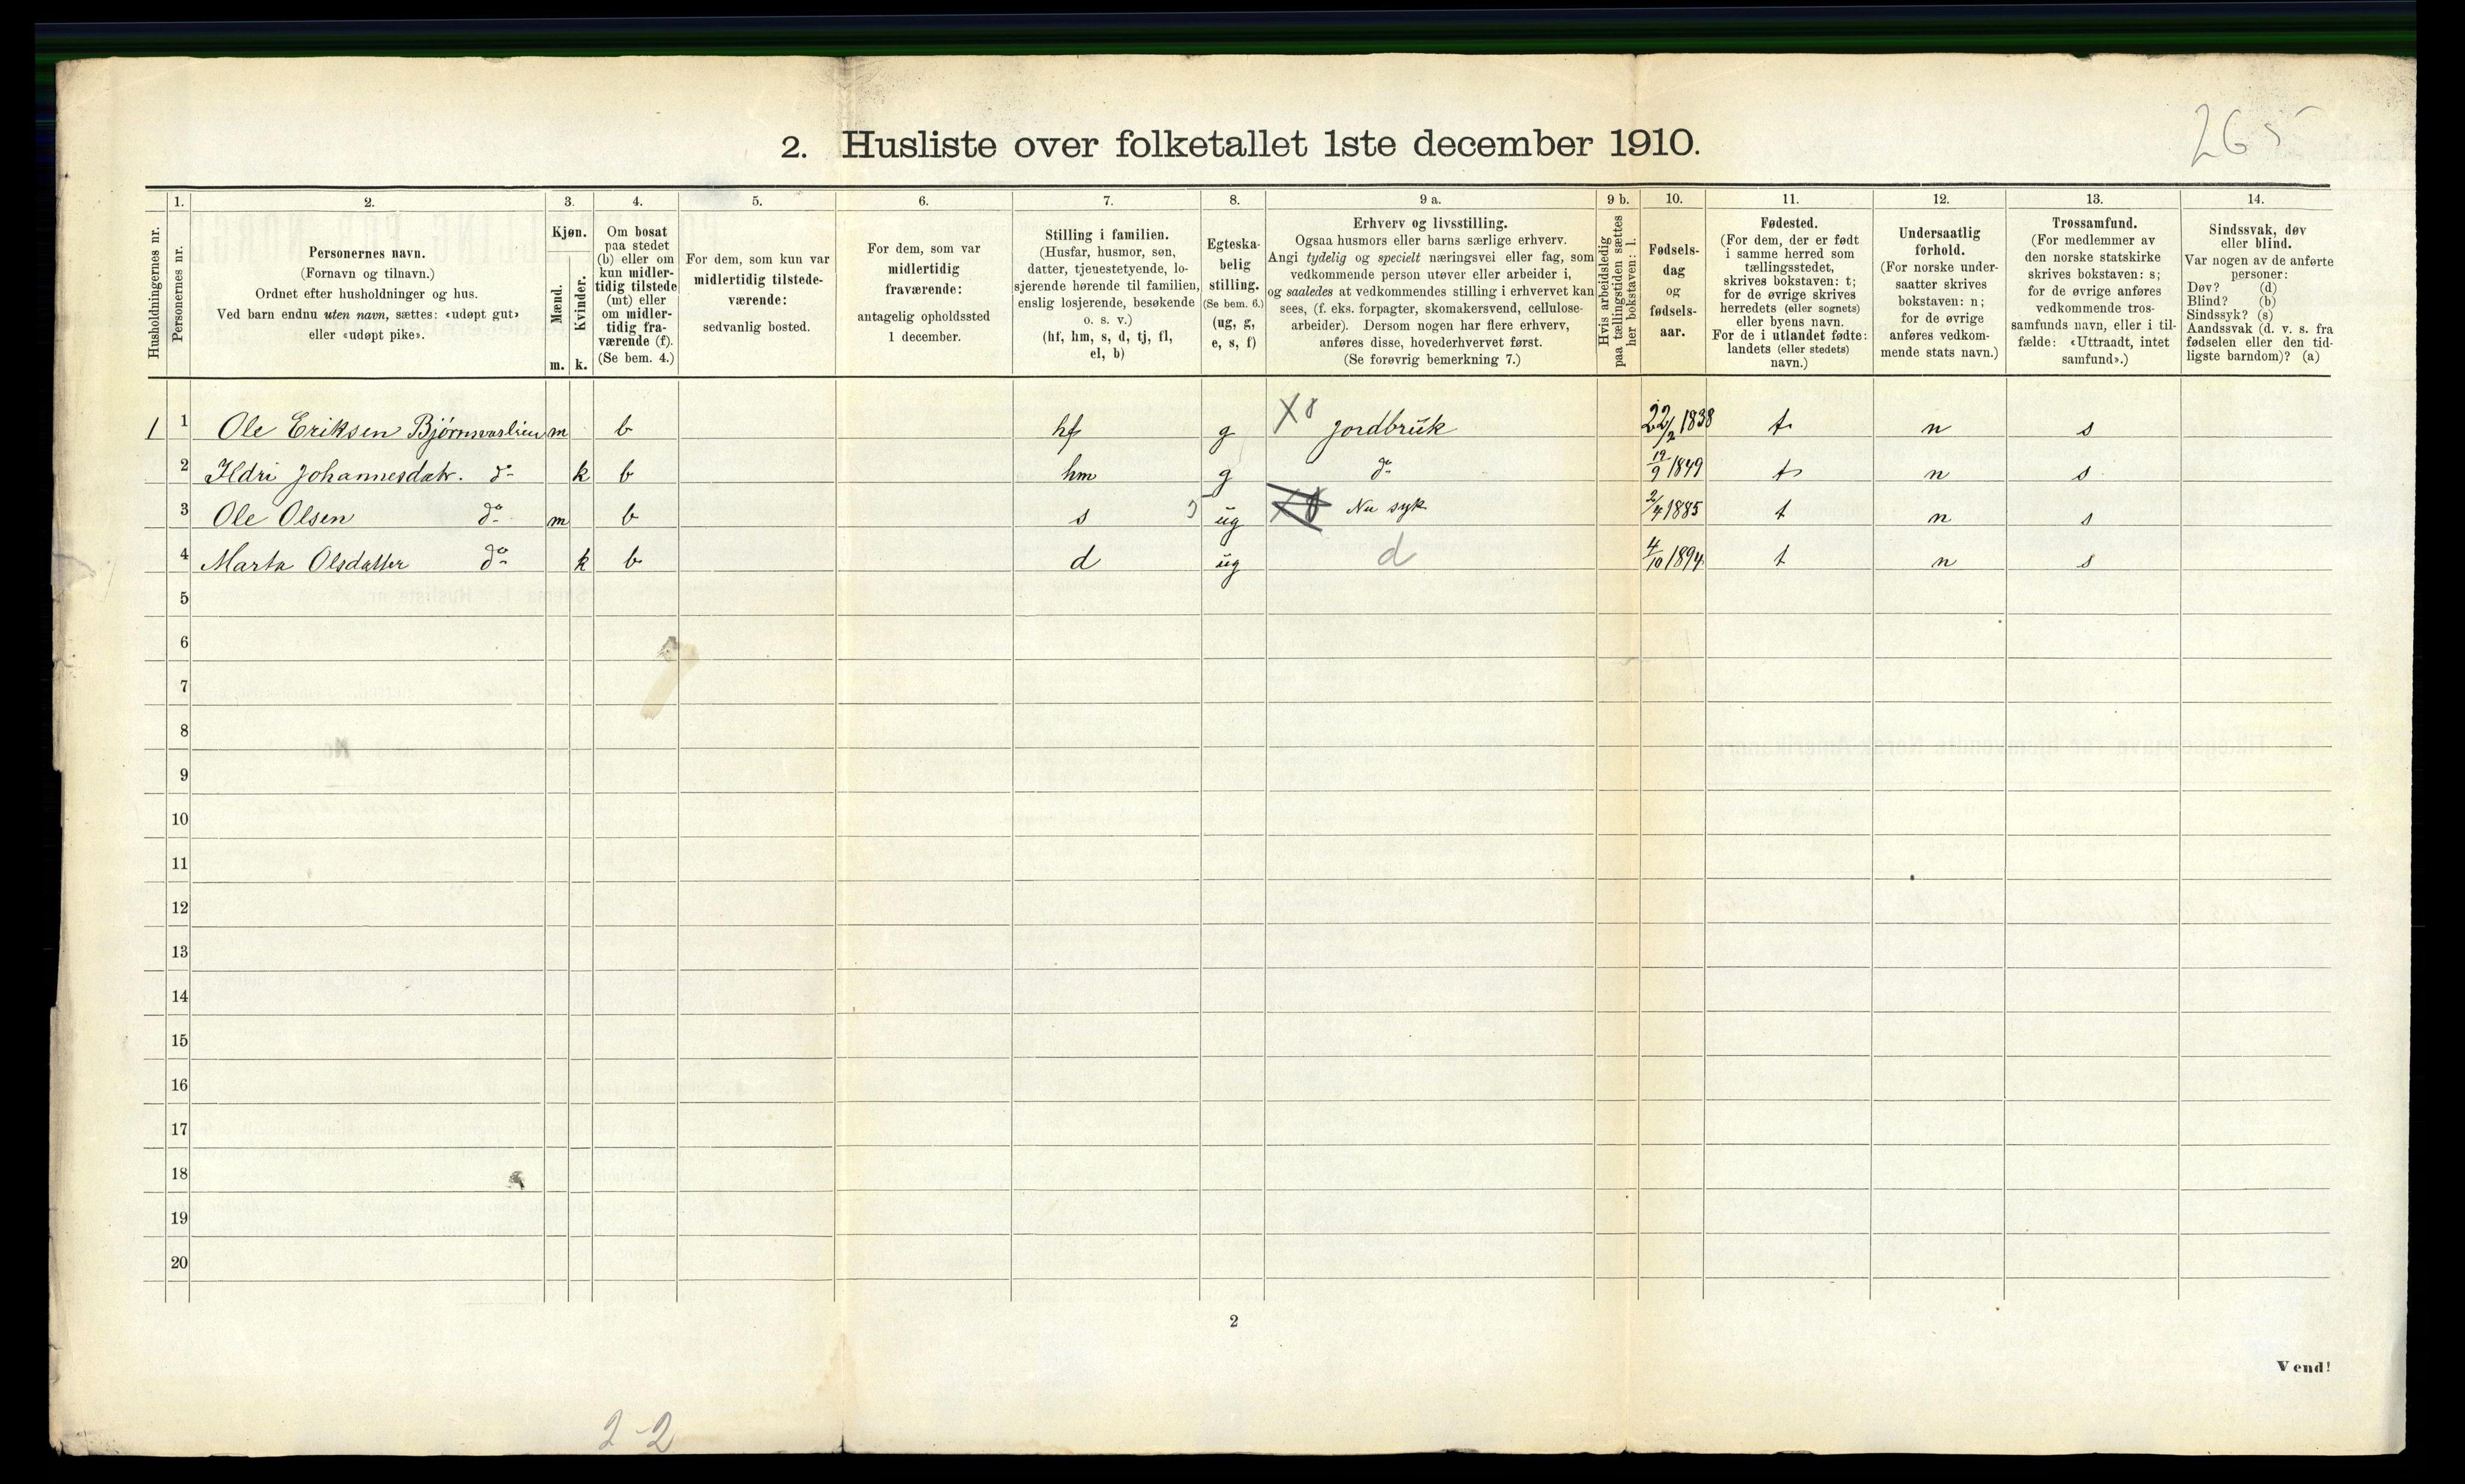 265
2. Husliste over folketallet 1ste december 1910.
1. 2. 3. 4. 5. 6. 7. 8. 9 a. 9 b. 10. 11. 12. 13. 14.
Husholdningernes nr.
Personernes nr.
Personernes navn.
(Fornavn og tilnavn.)
Ordnet efter husholdninger og hus.
Ved barn endnu uten navn, sættes: «udøpt gut»
eller «udøpt pike».
Kjøn.
Mænd.
Kvinder.
m. k.
Om bosat
paa stedet
(b) eller om
kun midler-
tidig tilstede
(mt) eller
om midler-
tidig fra-
værende (f).
(Se bem. 4.)
For dem, som kun var
midlertidig tilstede-
værende:
sedvanlig bosted.
For dem, som var
midlertidig
fraværende:
antagelig opholdssted
1 december.
Stilling i familien.
(Husfar, husmor, søn,
datter, tjenestetyende, lo-
sjerende hørende til familien,
enslig losjerende, besøkende
o. s. v.)
(hf, hm, s, d, tj, fl,
el, b)
Egteska-
belig
stilling.
(Se bem. 6.)
(ug, g,
e, s, f)
Erhverv og livsstilling.
Ogsaa husmors eller barns særlige erhverv.
Angi tydelig og specielt næringsvei eller fag, som
vedkommende person utøver eller arbeider i,
og saaledes at vedkommendes stilling i erhvervet kan
sees, (f. eks. forpagter, skomakersvend, cellulose-
arbeider). Dersom nogen har flere erhverv,
anføres disse, hovederhvervet først.
(Se forøvrig bemerkning 7.)
Hvis arbeidsledig
paa tællingstiden sættes
her bokstaven: l.
Fødsels-
dag
og
fødsels-
aar.
Fødested.
(For dem, der er født
i samme herred som
tællingsstedet,
skrives bokstaven: t;
for de øvrige skrives
herredets (eller sognets)
eller byens navn.
For de i utlandet fødte:
landets (eller stedets)
navn.)
Undersaatlig
forhold.
(For norske under-
saatter skrives
bokstaven: n;
for de øvrige
anføres vedkom-
mende stats navn.)
Trossamfund.
(For medlemmer av
den norske statskirke
skrives bokstaven: s;
for de øvrige anføres
vedkommende tros-
samfunds navn, eller i til-
fælde: «Uttraadt, intet
samfund».)
Sindssvak, døv
eller blind.
Var nogen av de anførte
personer:
Døv? (d)
Blind? (b)
Sindssyk? (s)
Aandssvak (d. v. s. fra
fødselen eller den tid-
ligste barndom)? (a)
1 1 Ole Eriksen Bjørnsvaslien m b hf g X8 Jordbruk 22/2 1838 t n s
2 Ildri Johannesdatr. do k b hm g do 19/9 1849 t n s
3 Ole Olsen do m b s ug Nu syk 2/4 1885 t n s
4 Marta Olsdatter do k b d ug d 4/10 1894 t n s
5
6
7
8
9
10
11
12
13
14
15
16
17
18
19
20
2
Vend!
2-2